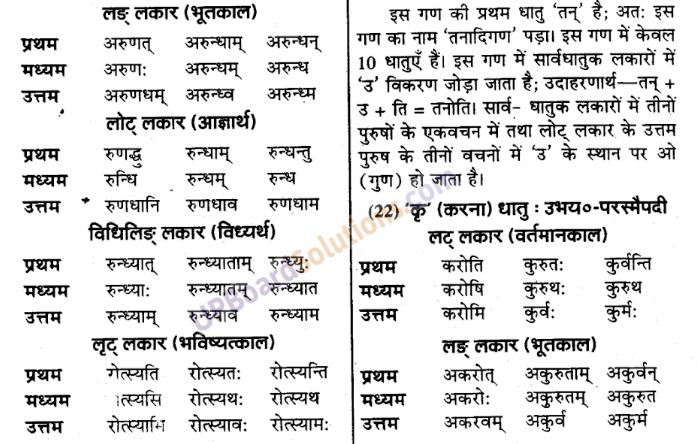 लङ् लकार (भूतकाल)
प्रथम अरुणत् अरुन्धाम् अरुन्धन्
मध्यम अरुणः अरुन्धम् अरुन्ध
उत्तम अरुणधम् अरुन्ध्व अरुन्ध्म
लोट् लकार (आज्ञार्थ)
प्रथम रुणद्धु रुन्धाम् रुन्धन्तु
मध्यम रुन्धि रुन्धम् रुन्ध
उत्तम रुणधानि रुणधाव रुणधाम
विधिलिङ् लकार (विध्यर्थ)
प्रथम रुन्ध्यात् रुन्ध्याताम् रुन्ध्युः
मध्यम रुन्ध्याः रुन्ध्यातम् रुन्ध्यात
उत्तम रुन्ध्याम् रुन्ध्याव रुन्ध्याम
लृट् लकार (भविष्यत्काल)
प्रथम रोत्स्यतः रोत्स्यन्ति
मध्यम रोत्स्यथः रोत्स्यथ
उत्तम रोत्स्यावः रोत्स्यामः
इस गण की प्रथम धातु ‘तन्’ है; अतः इस
गण का नाम ‘तनादिगण’ पड़ा। इस गण में केवल
10 धातुएँ हैं। इस गण में सार्वधातुक लकारों में
‘उ’ विकरण जोड़ा जाता है; उदाहरणार्थ—तन् +
उ + ति = तनोति। सार्व- धातुक लकारों में तीनों
पुरुषों के एकवचन में तथा लोट् लकार के उत्तम
पुरुष के तीनों वचनों में ‘उ’ के स्थान पर ओ
(गुण) हो जाता है।
(22) ‘कृ’ (करना) धातु : उभय०-परस्मैपदी
लट् लकार (वर्तमानकाल)
प्रथम करोति कुरुतः कुर्वन्ति
मध्यम करोषि कुरुथः कुरुथ
उत्तम करोमि कुर्वः कुर्मः
लङ् लकार (भूतकाल)
प्रथम अकरोत् अकुरुताम् अकुर्वन्
मध्यम अकरोः अकुरुतम् अकुरुत
उत्तम अकरवम् अकुर्व अकुर्म
UPBoardSolutions.com